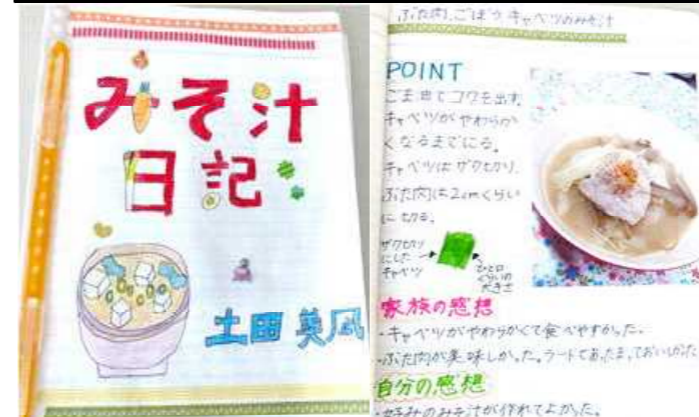 みそ汁
日記
土田 英凪
ぶた肉、ごぼう、キャベツのみそ汁
POINT
ごま油でコクを出す。
キャベツがやわらか
くなるまでにる。
キャベツはザク切り。
ぶた肉は2cmくらい
に切る。
ザク切り
にした
キャベツ
ひと口
くらいの
大きさ
家族の感想
・キャベツがやわらかくて食べやすかった。
・ぶた肉が美味しかった。ラー油であたたまっておいしかった
自分の感想
・好みのみそ汁が作れてよかった。